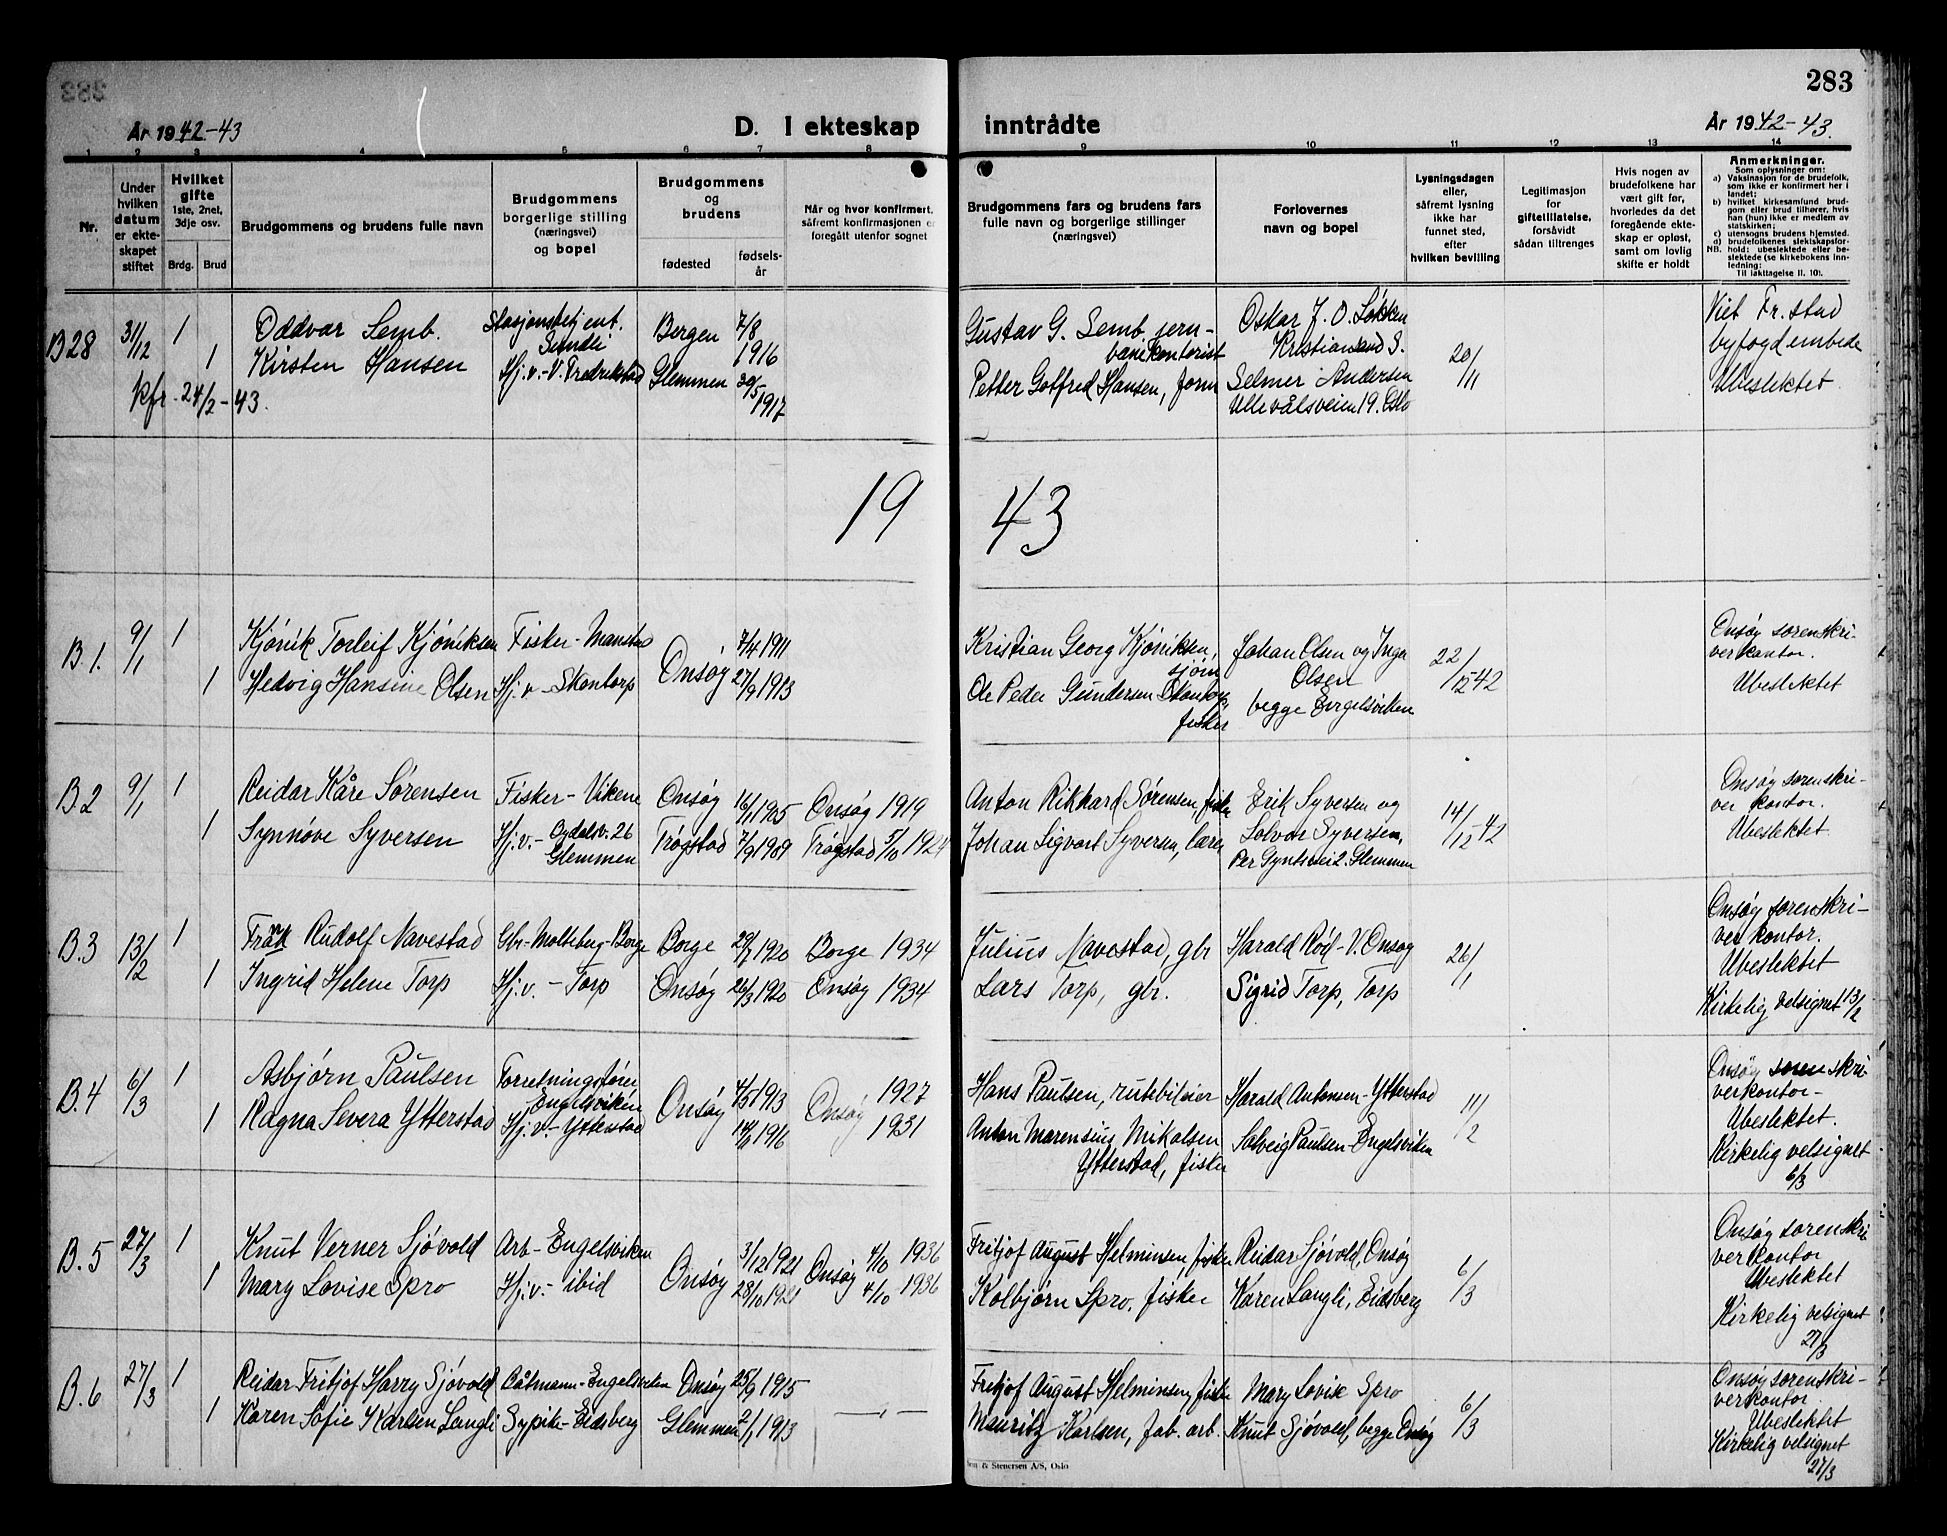 283
År 1942-43
D. I ekteskap
inntrådte
År 1942-43.
1 2 3 4 5 6 7 8 9 10 11 12 13 14
Nr.
Under
hvilken
datum
er ekte-
skapet
stiftet
Hvilket
gifte
1ste, 2net,
3dje osv.
Brdg. Brud
Brudgommens og brudens fulle navn
Brudgommens
borgerlige stilling
(næringsvei)
og bopel
Brudgommens
og
brudens
fødested
fødsels-
år
Når og hvor konfirmert,
såfremt konfirmasjonen er
foregått utenfor sognet
Brudgommens fars og brudens fars
fulle navn og borgerlige stillinger
(næringsvei)
Forlovernes
navn og bopel
Lysningsdagen
eller,
såfremt lysning
ikke har
funnet sted,
efter
hvilken bevilling
Legitimasjon
for
giftetillatelse,
forsåvidt
sådan tiltrenges
Hvis nogen av
brudefolkene har
vært gift før,
hvorledes da det
foregående ekte-
skap er opløst,
samt om lovlig
skifte er holdt
Anmerkninger.
Som oplysninger om:
a) Vaksinasjon for de brudefolk,
som ikke er konfirmert her i
landet;
b) hvilket kirkesamfund brud-
gom eller brud tilhører, hvis
han (hun) ikke er medlem av
statskirken;
c) utensogns brudens hjemsted.
d) brudefolkenes slektskapsfor-
NB. hold: ubeslektede eller be-
slektede (se kirkebokens inn-
ledning:
Til iakttagelse II. 10).
B28 31/12 1
1
kfr. 24/2-43.
Oddvar Semb.
Kirsten Hansen
Stasjonsbetjent.
Hj.v.-V. Fredrikstad
Bergen 7/8 1916
Glemmen 30/5 1917
Gustav G. Semb jern-
banekontorist
Petter Gotfred Hansen, form
Oskar J. O. Løkken
Kristiansand S.
Selmer Andersen
Ullevålsveien 19. Oslo
20/11
Viet Fr.stad
byfogdembede
Ubeslektet.
19 43
B.1. 9/1 1
1
Kjönik Torleif Kjöniksen
Hedvig Hansine Olsen
Fisker-Manstad
Hj.v-Skentorp
Onsøy
7/4 1911
27/9 1913
Kristian Georg Kjöniksen,
sjöm
Ole Peder Gundersen
fisker
Johan Olsen og Inga
Olsen
begge Engelsviken
22/12-42
Onsøy sorenskri-
verkontor.
Ubeslektet
B2 9/1 1
1
Reidar Kåre Sørensen
Synnøve Syversen
Fisker-Vikene
Hj.v.-Oydalsv. 26
Glemmen
Onsøy 16/1 1905 Onsøy 1919
Trøgstad 7/9 1909 Trøgstad 5/10 1924
Anton Rikhard Sørensen, fisker
Johan Sigvart Syversen, lærer
Erik Syversen og
Solvor Syversen,
Per Gyntsvei 2. Glemmen
14/12-42
Onsøy sorenskri-
ver kontor.
Ubeslektet.
B.3 13/2 1
1
Frank Rudolf Navestad
Ingrid Helene Torp
Gbr-Molteberg-Borge
Hj.v.-Torp
Borge 29/7 1920 Borge 1934
Onsøy 26/3 1920 Onsøy 1934
Julius Navestad, gbr
Lars Torp, gbr.
Harald Rød-V. Onsøy
Sigrid Torp, Torp
26/1
Onsøy sorenskri-
ver kontor.
Ubeslektet
Kirkelig velsignet 13/2
B.4 6/3 1
1
Asbjørn Paulsen
Ragna Severa Ytterstad
Forretningsfører
Engelsviken
Hj.v.-Ytterstad
Onsøy
4/5 1913
14/1 1916
Onsøy
1927
1931
Hans Paulsen, rutebileier
Anton Marensius Mikalsen
Ytterstad, fisker
Harald Antonsen-Ytterstad
Solveig Paulsen-Engelsviken
11/2
Onsøy sorenskri-
verkontor-
Ubeslektet.
Kirkelig velsignet
6/3
B.5 27/3 1
1
Knut Verner Sjövold
Mary Lovise Spro
Arb-Engelsviken
Hj.v.-ibid
Onsøy
3/12 1921
28/10 1921
Onsøy
4/10 1936
4/10 1936
Fritjof August Helminsen, fisker
Kolbjørn Spro, fisker
Reidar Sjövold, Onsøy
Karen Langli, Eidsberg
6/3
Onsøy sorenskri
verkontor
Ubeslektet
Kirkelig velsignet
27/3
B.6 27/3 1
1
Reidar Fritjof Harry Sjövold
Karen Sofie Karlsen Langli
Båtmann-Engelsviken
Sypike-Eidsberg
Onsøy 25/9 1915
Glemmen 2/1 1913
Fritjof August Helminsen, fisker
Mauritz Karlsen, fab. arb.
Mary Lovise Spro
Knut Sjövold, begge Onsøy
6/3
Onsøy sorenskri-
verkontor
Ubeslektet
Kirkelig velsignet
27/3
& Stenersen A/S, Oslo